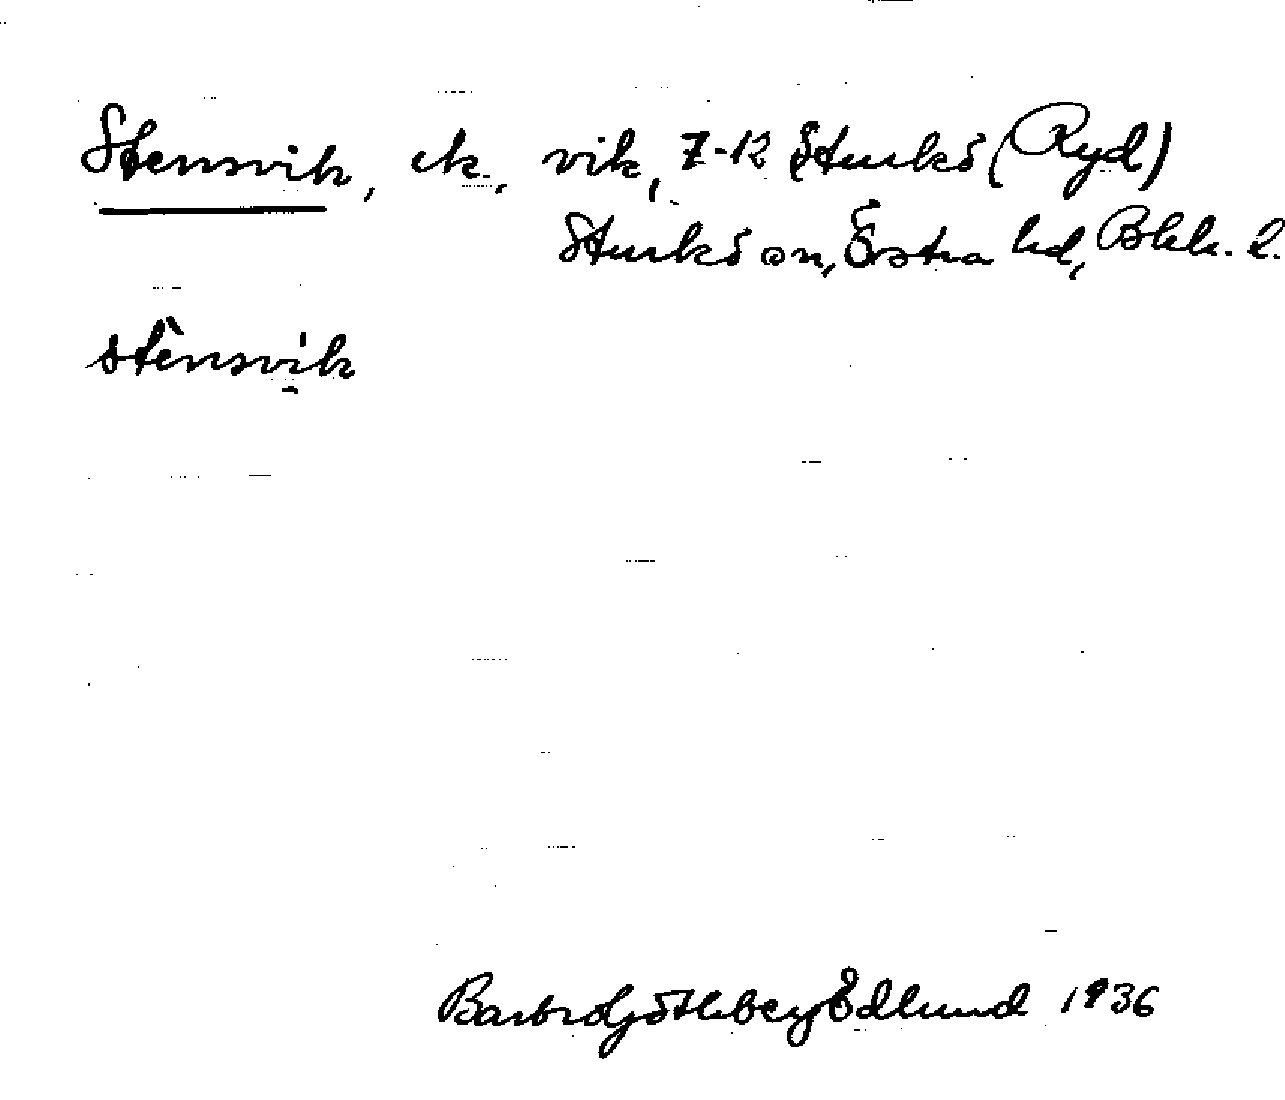 Stensvik, ck., vik, 7-12 Sturkö (Ryd)
Sturkö sn, Östra hd, Blek. l.
stènsvìk
Barbro Götlebey Edlund 1936